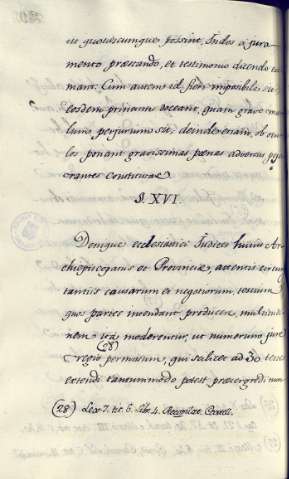 eis quotiescumque possint, Indos à jura-
mento præstando, et testimonio dicendo re-
moveant. Cum autem id fieri impossibile
eosdem prius doceant, quam grave
perjurium sit; deinde etiam, ob ocu-
los ponant gravissimas pœnas adversus pej-
erantes constitutas.
§. XVI.
Denique ecclesiastici Judices hujus Ar-
chiepiscopatus et Provinciæ, attentis circuns-
tantiis causarum et negotiorum, testium
quos partes intendant producere, multitudi-
nem ita moderentur, ut numerum jure
(28)
regio permissum, qui scilicet ad 30 testes
extendi tantummodo potest prætergredi non
(28) Lex 7. tit. 6. Lib. 4. Recopilat. Castell.